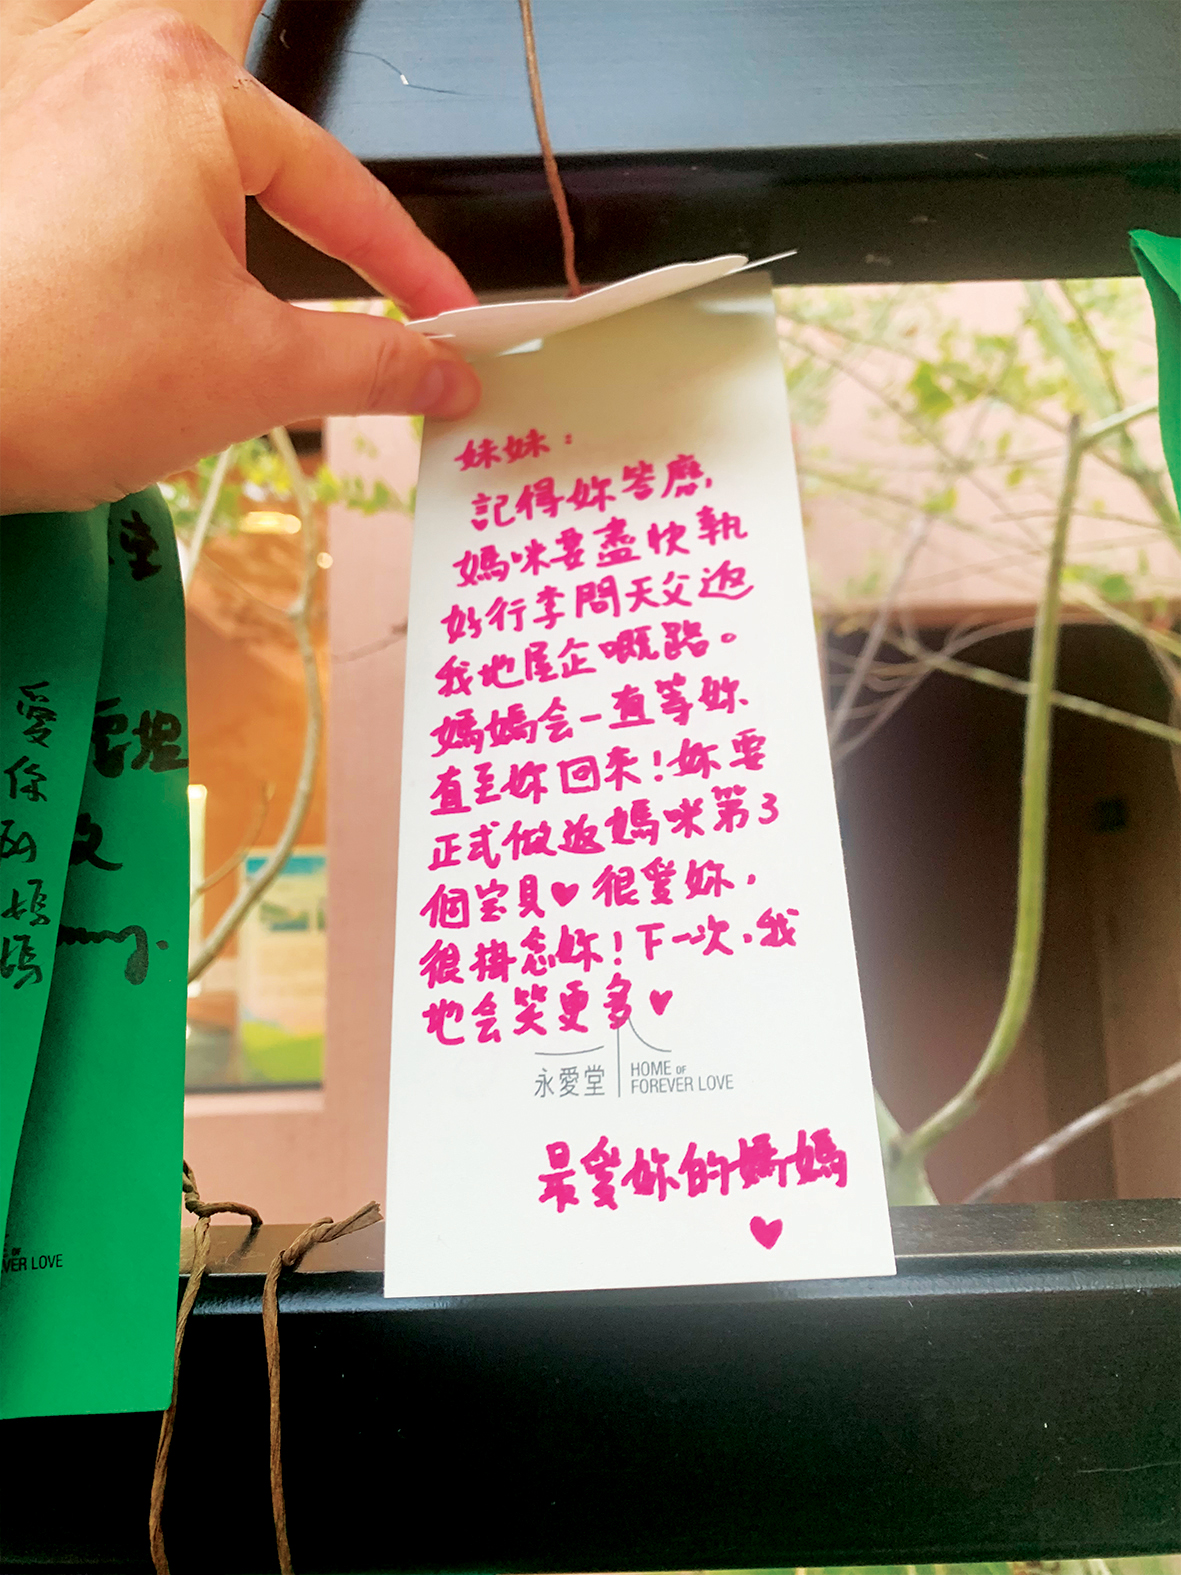 妹妹：
記得妳答應
媽咪要盡快執
好行李問天父返
我地屋企嘅路。
媽媽会一直等妳
直至妳回來！妳要
正式做返媽咪第3
個宝貝♥很愛妳，
很掛念妳！下一次，我
地会笑更多♥
永愛堂
HOME OF
FOREVER LOVE
最愛妳的媽媽
♥
愛
你
媽
媽
OF
VER LOVE